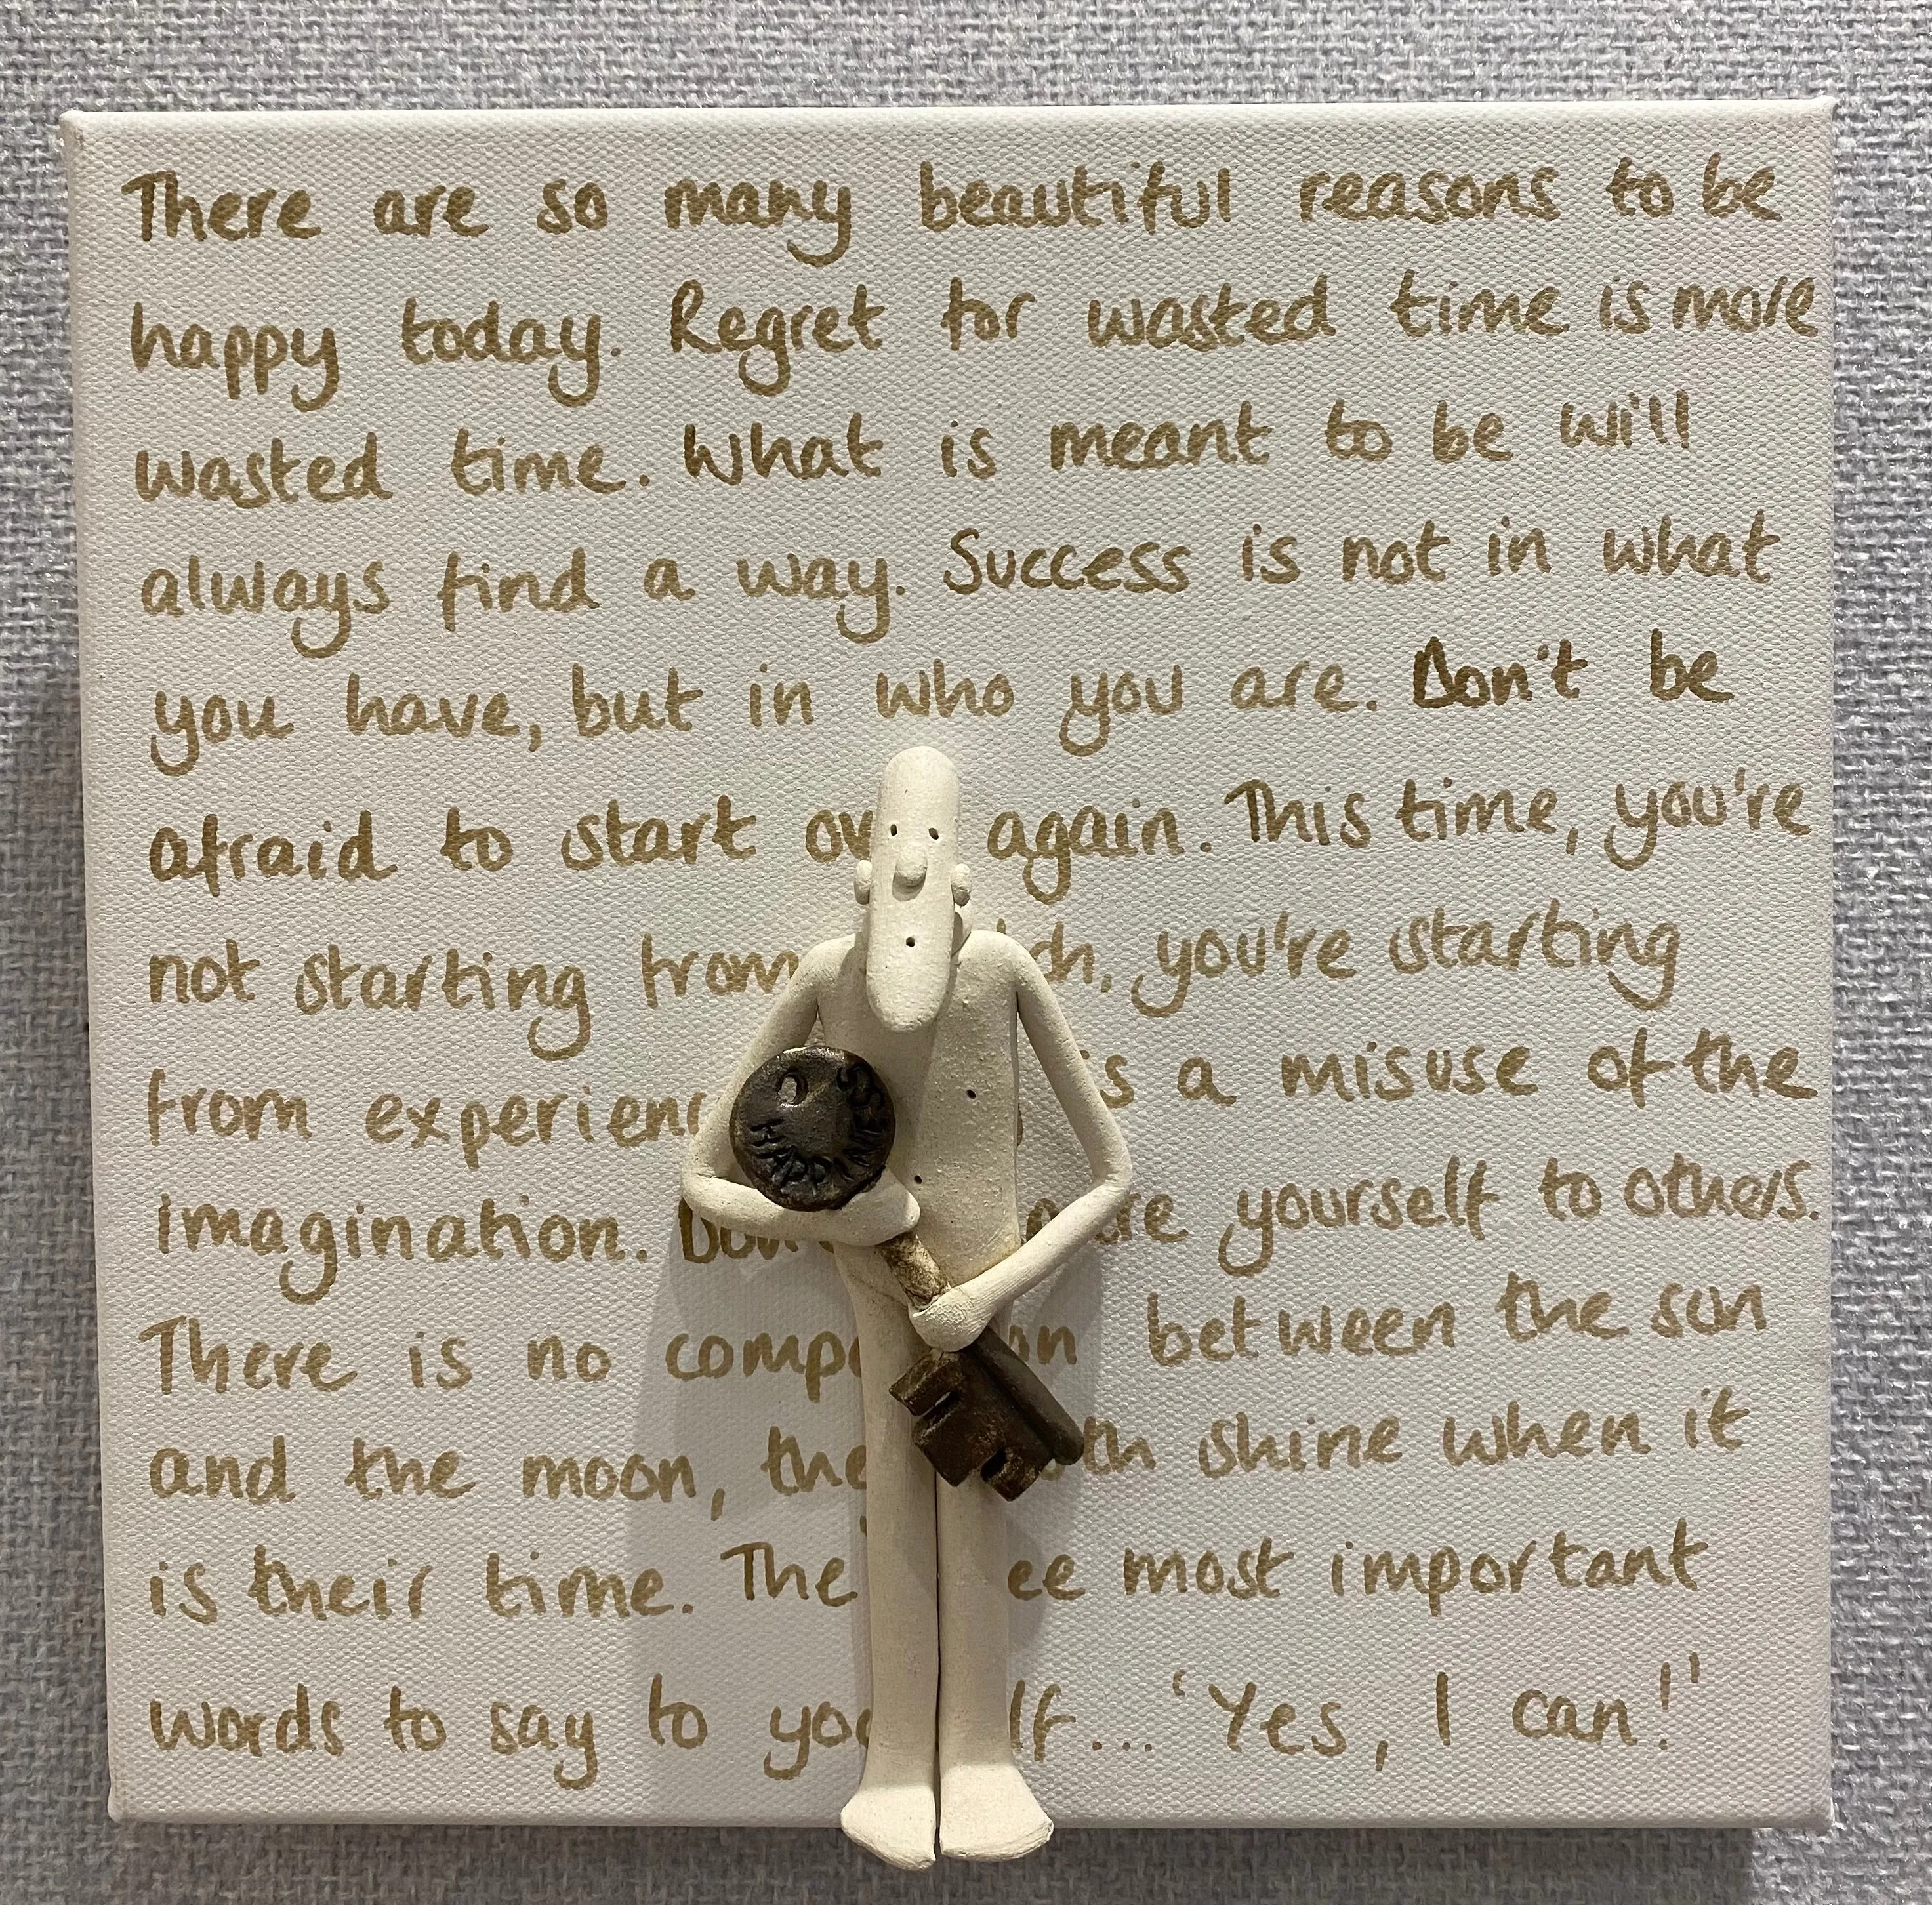 There are so many beautiful reasons to be
happy today. Regret for wasted time is more
wasted time. What is meant to be will
always find a way. Success is not in what
you have, but in who you are. Don't be
afraid to start ov again. This time, you're
not starting from ch, you're starting
from experienc is a misuse of the
imagination. Don' are yourself to others.
There is no comp on between the sun
and the moon, the oth shine when it
is their time. The ee most important
words to say to you lf... 'Yes, I can!'
HAPPINESS